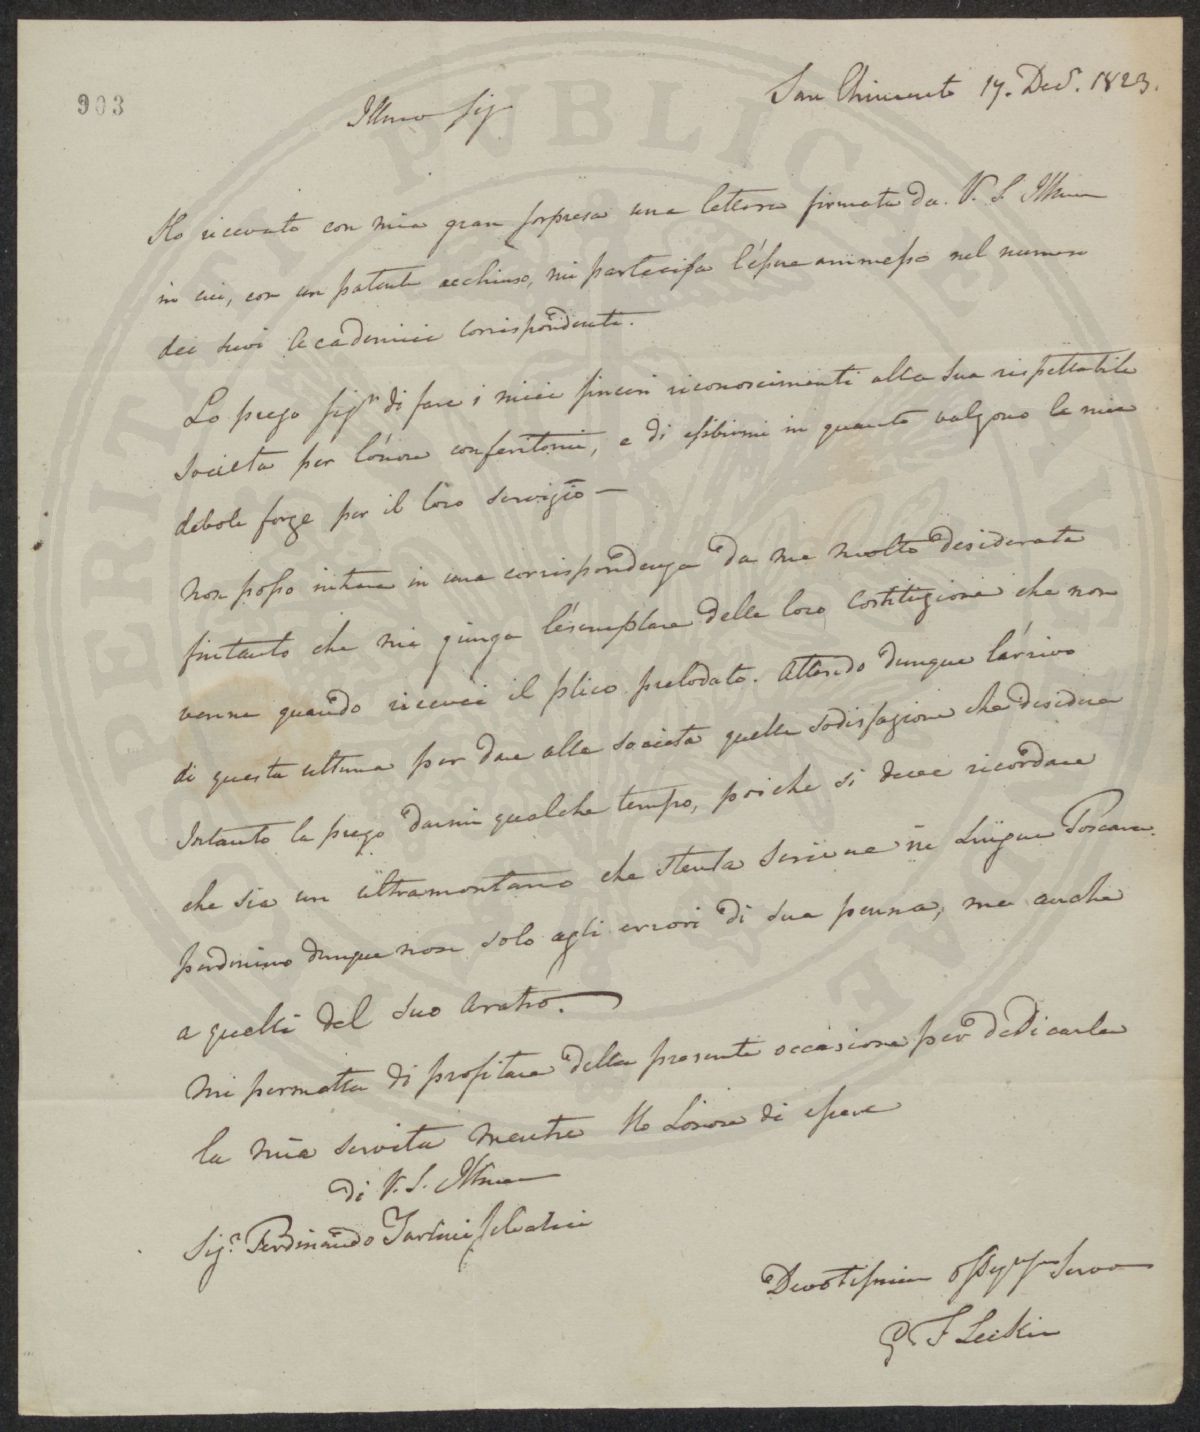 903
San Chimento 17. Decr. 1823.
Illmo Sigr
Ho ricevuto con mia gran sorpresa una lettera firmata da V. S. Illma
in cui, con un patente acchiuso, mi partecipa l'éssere ammesso nel numero
dei suoi Accademici Corrispondenti.
La prego Sigr di fare i miei sinceri riconoscimenti alla sua rispettabile
Società per l'ónore conferitomi, e di essibirmi in quanto valgono le mie
debole forze per il loro servizio —
Non posso intrare in una corrispondenza da me molto desiderata
fintanto che mi giunga l'ésemplare della loro Costituzione che non
venne quando ricevei il plico prelodato. Attendo dunque l'árrivo
di questa ultima per dare alla Società quella sodisfazione che desidera
Intanto la prego darmi qualche tempo, poiche si deve ricordare
che sia un ultramontano che stenta scrivere in Lingua Toscana.
perdonino dunque non solo agli errori di sua penna, ma anche
a quelli del suo aratro.
Mi permetta di profitare della presente occasione per dedicarla
la mia servitu mentre Ho L'onore di essere
di V. S. Illma
Sigr. Ferdinando Tartini Salvatici
Devotissimo Servo
G F Leckie
PUBLICAE
PROSPERITATI